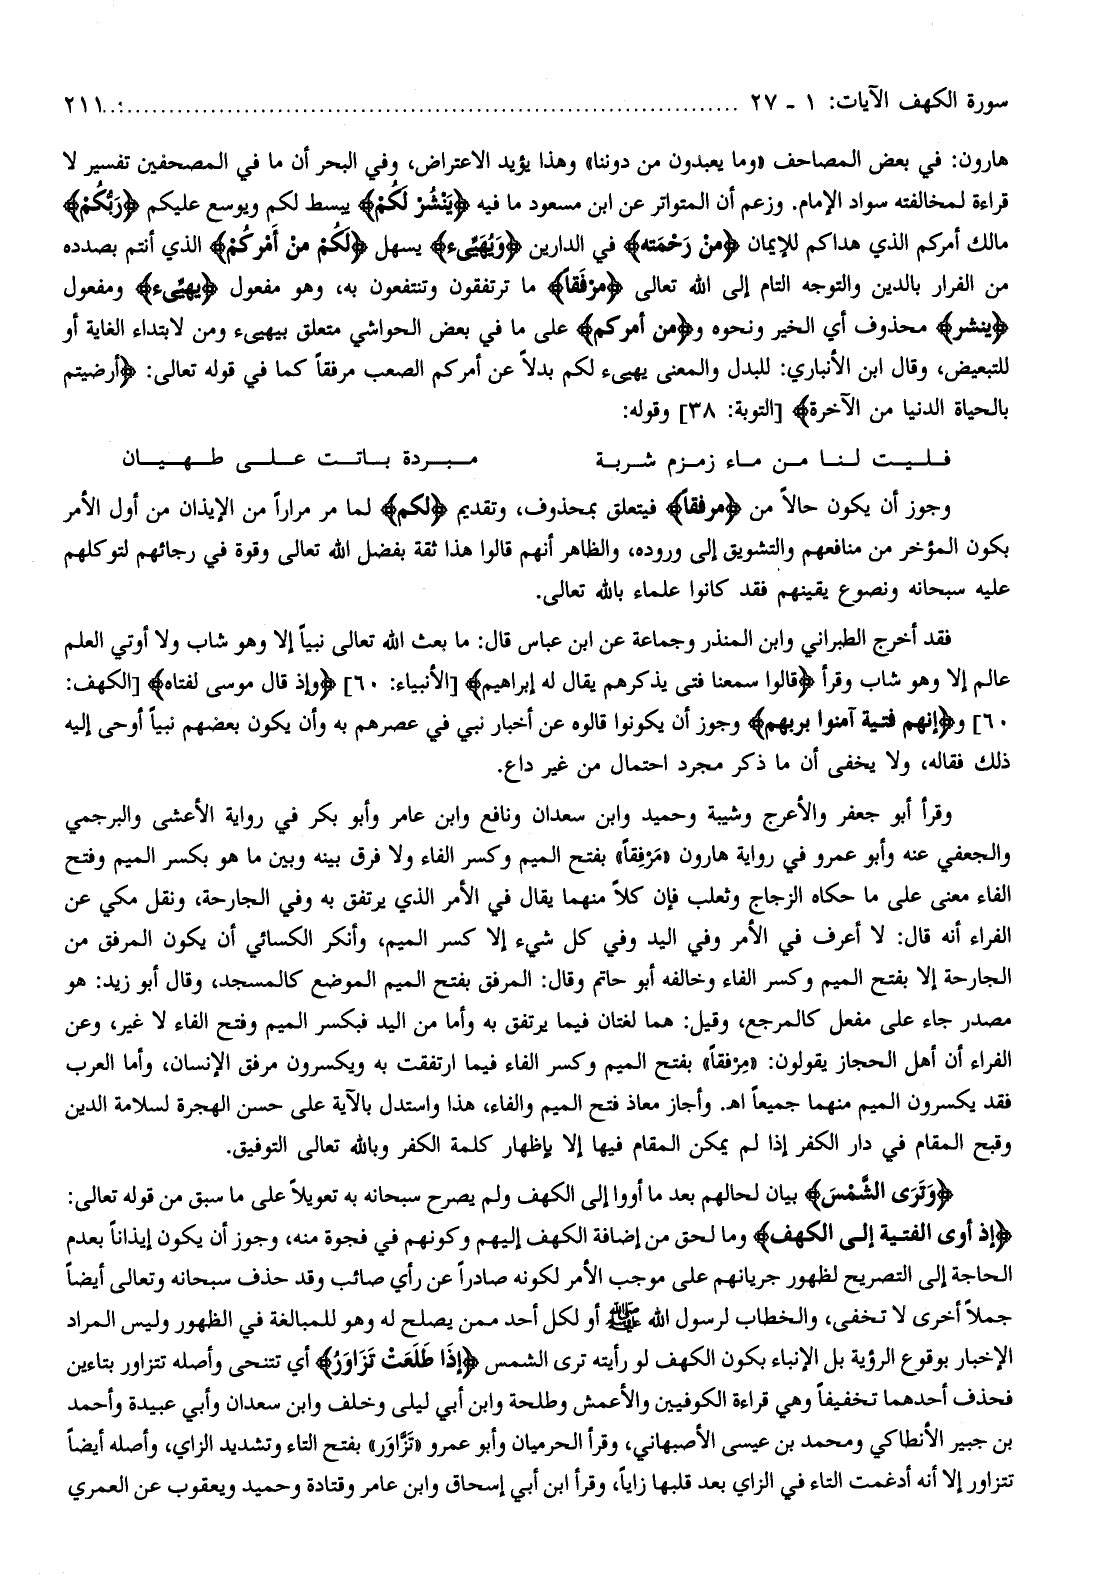 سورة الكهف الآيات: ١ - ٢٧ ........................................................................ ٢١١
هارون: في بعض المصاحف «وما يعبدون من دوننا» وهذا يؤيد الاعتراض، وفي البحر أن ما في المصحفين تفسير لا
قراءة لمخالفته سواد الإمام. وزعم أن المتواتر عن ابن مسعود ما فيه ﴿يَنْشُرْ لَكُمْ﴾ يبسط لكم ويوسع عليكم ﴿رَبُّكُمْ﴾
مالك أمركم الذي هداكم للإيمان ﴿مِنْ رَحْمَته﴾ في الدارين ﴿وَيُهَيِّىء﴾ يسهل ﴿لَكُمْ منْ أَمْركُمْ﴾ الذي أنتم بصدده
من الفرار بالدين والتوجه التام إلى الله تعالى ﴿مرْفَقاً﴾ ما ترتفقون وتنتفعون به، وهو مفعول ﴿يهيِّىء﴾ ومفعول
﴿ينشر﴾ محذوف أي الخير ونحوه و﴿من أمركم﴾ على ما في بعض الحواشي متعلق بيهيىء ومن لابتداء الغاية أو
للتبعيض، وقال ابن الأنباري: للبدل والمعنى يهيىء لكم بدلاً عن أمركم الصعب مرفقاً كما في قوله تعالى: ﴿أرضيتم
بالحياة الدنيا من الآخرة﴾ [التوبة: ٣٨] وقوله:
فليت لنا من ماء زمزم شربة مبردة باتت على طهيان
وجوز أن يكون حالاً من ﴿مرفقاً﴾ فيتعلق بمحذوف، وتقديم ﴿لكم﴾ لما مر مراراً من الإيذان من أول الأمر
بكون المؤخر من منافعهم والتشويق إلى وروده، والظاهر أنهم قالوا هذا ثقة بفضل الله تعالى وقوة في رجائهم لتوكلهم
عليه سبحانه ونصوع يقينهم فقد كانوا علماء بالله تعالى.
فقد أخرج الطبراني وابن المنذر وجماعة عن ابن عباس قال: ما بعث الله تعالى نبياً إلا وهو شاب ولا أوتي العلم
عالم إلا وهو شاب وقرأ ﴿قالوا سمعنا فتى يذكرهم يقال له إبراهيم﴾ [الأنبياء: ٦٠] ﴿وإذ قال موسى لفتاه﴾ [الكهف:
٦٠] و﴿إنهم فتية آمنوا بربهم﴾ وجوز أن يكونوا قالوه عن أخبار نبي في عصرهم به وأن يكون بعضهم نبياً أوحى إليه
ذلك فقاله، ولا يخفى أن ما ذكر مجرد احتمال من غير داع.
وقرأ أبو جعفر والأعرج وشيبة وحميد وابن سعدان ونافع وابن عامر وأبو بكر في رواية الأعشى والبرجمي
والجعفي عنه وأبو عمرو في رواية هارون «مَرْفِقاً» بفتح الميم وكسر الفاء ولا فرق بينه وبين ما هو بكسر الميم وفتح
الفاء معنى على ما حكاه الزجاج وثعلب فإن كلاً منهما يقال في الأمر الذي يرتفق به وفي الجارحة، ونقل مكي عن
الفراء أنه قال: لا أعرف في الأمر وفي اليد وفي كل شيء إلا كسر الميم، وأنكر الكسائي أن يكون المرفق من
الجارحة إلا بفتح الميم وكسر الفاء وخالفه أبو حاتم وقال: المرفق بفتح الميم الموضع كالمسجد، وقال أبو زيد: هو
مصدر جاء على مفعل كالمرجع، وقيل: هما لغتان فيما يرتفق به وأما من اليد فبكسر الميم وفتح الفاء لا غير، وعن
الفراء أن أهل الحجاز يقولون: «مِرْفقاً» بفتح الميم وكسر الفاء فيما ارتفقت به ويكسرون مرفق الإنسان، وأما العرب
فقد يكسرون الميم منهما جميعاً اهـ. وأجاز معاذ فتح الميم والفاء، هذا واستدل بالآية على حسن الهجرة لسلامة الدين
وقبح المقام في دار الكفر إذا لم يمكن المقام فيها إلا بإظهار كلمة الكفر وبالله تعالى التوفيق.
﴿وَتَرَى الشَّمْسَ﴾ بيان لحالهم بعد ما أووا إلى الكهف ولم يصرح سبحانه به تعويلاً على ما سبق من قوله تعالى:
﴿إذ أوى الفتية إلى الكهف﴾ وما لحق من إضافة الكهف إليهم وكونهم في فجوة منه، وجوز أن يكون إيذاناً بعدم
الحاجة إلى التصريح لظهور جريانهم على موجب الأمر لكونه صادراً عن رأي صائب وقد حذف سبحانه وتعالى أيضاً
جملاً أخرى لا تخفى، والخطاب لرسول الله ﷺ أو لكل أحد ممن يصلح له وهو للمبالغة في الظهور وليس المراد
الإخبار بوقوع الرؤية بل الإنباء بكون الكهف لو رأيته ترى الشمس ﴿إذَا طَلَعَتْ تَزَاوَرُ﴾ أي تتنحى وأصله تتزاور بتاءين
فحذف أحدهما تخفيفاً وهي قراءة الكوفيين والأعمش وطلحة وابن أبي ليلى وخلف وابن سعدان وأبي عبيدة وأحمد
بن جبير الأنطاكي ومحمد بن عيسى الأصبهاني، وقرأ الحرميان وأبو عمرو «تَزَّاوَر» بفتح التاء وتشديد الزاي، وأصله أيضاً
تتزاور إلا أنه أدغمت التاء في الزاي بعد قلبها زاياً، وقرأ ابن أبي إسحاق وابن عامر وقتادة وحميد ويعقوب عن العمري